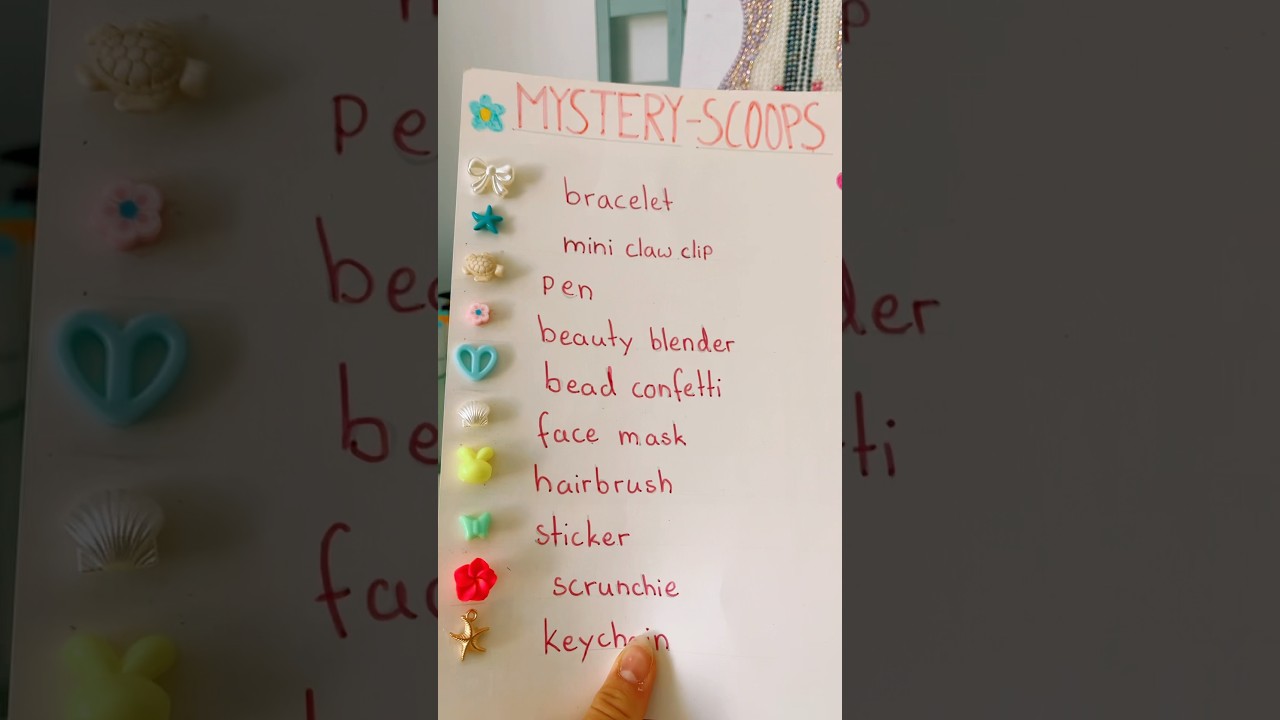 MYSTERY-SCOOPS
bracelet
mini claw clip
pen
beauty blender
bead confetti
face mask
hairbrush
sticker
scrunchie
keychain